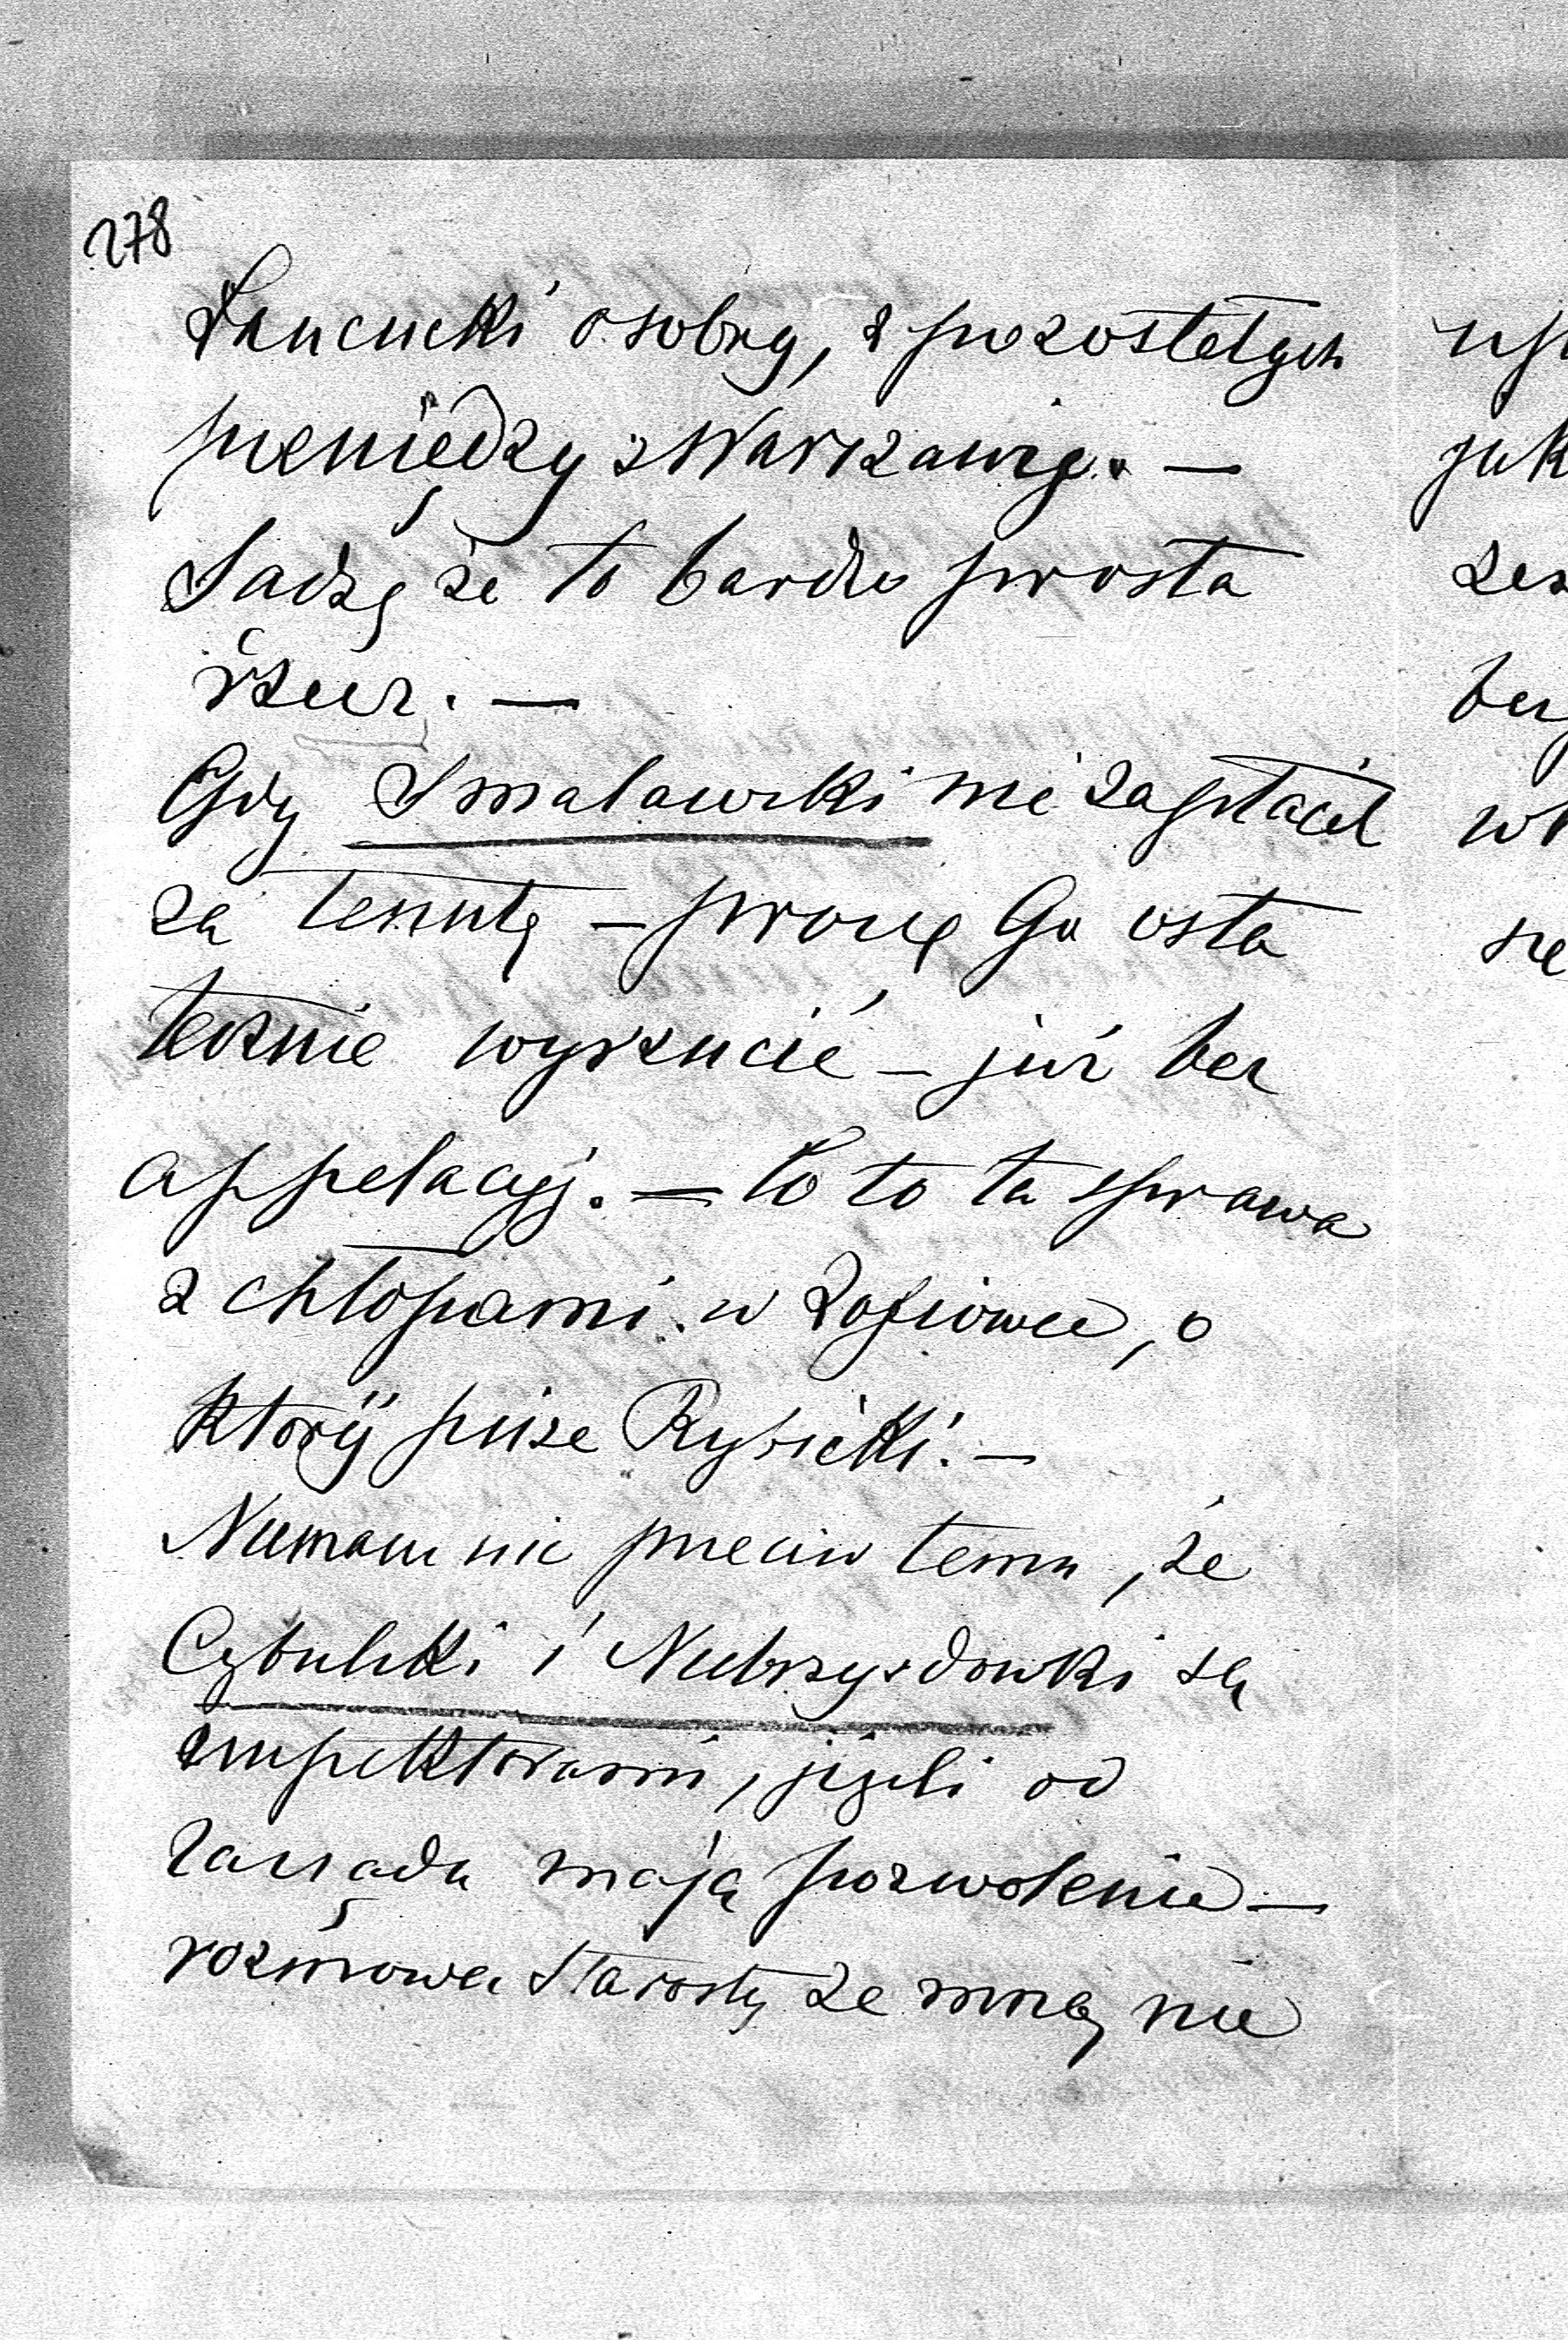 278
Łancucki osobny, z pozostałych
pieniędzy z Warszawie. —
Sądzę że to bardzo prosta
rzecz. —
Gdy Smalawski nie zapłacił
za tenutę — proszę Go osta
tecznie wyrzucić — już bez
appelacyj. — Co to ta sprawa
z chłopami w Zofiowce, o
któryj pisze Rybicki. —
Niemam nic przeciw temu, że
Cybulski i Niebrzydowski są
inspektorami, jiżeli od
Zarządu mają pozwolenie —
rozmowa Starosty ze mną nie